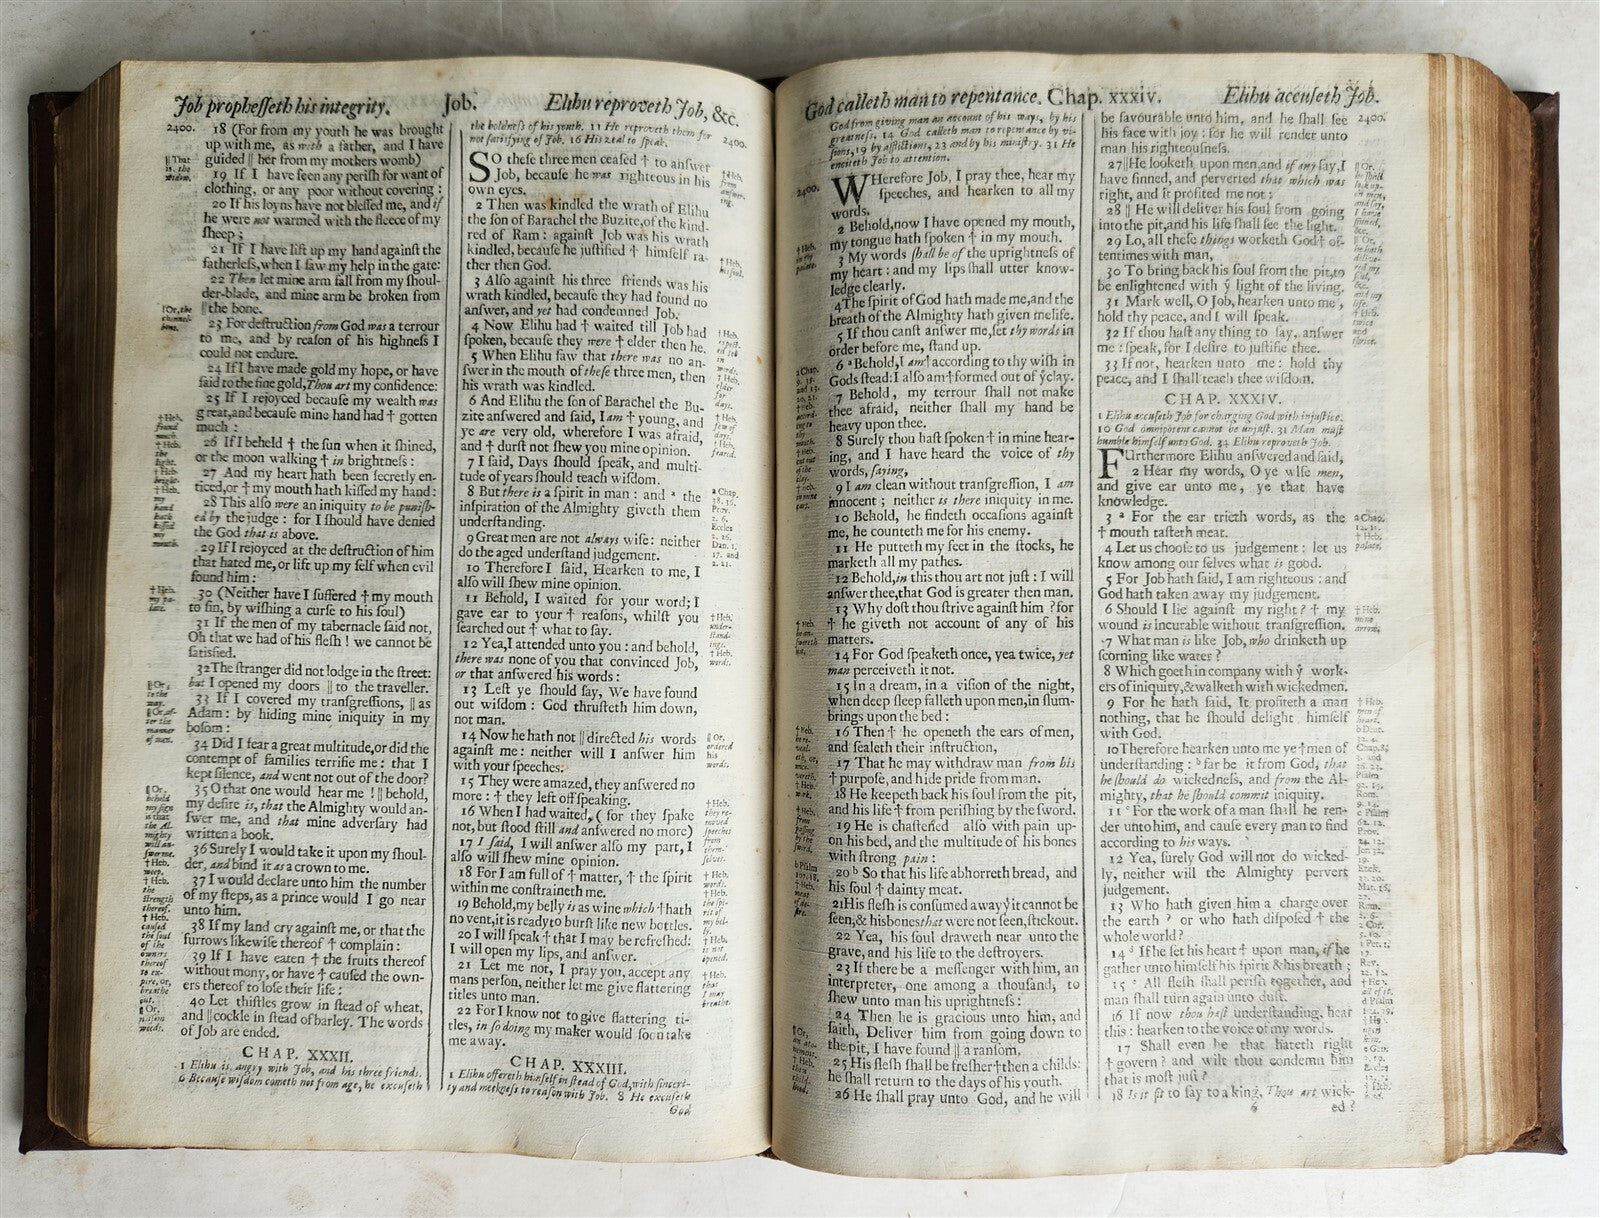 Job professeth his integrity. Job. Elihu reproveth Job, &c.
2400.
18 (For from my youth he was brought
up with me, as with a father, and I have
guided || her from my mothers womb)
19 If I have seen any perish for want of
clothing, or any poor without covering:
20 If his loyns have not blessed me, and if
he were not warmed with the fleece of my
sheep;
21 If I have lift up my hand against the
fatherless, when I saw my help in the gate:
22 Then let mine arm fall from my shoul-
der-blade, and mine arm be broken from
|| the bone.
23 For destruction from God was a terrour
to me, and by reason of his highness I
could not endure.
24 If I have made gold my hope, or have
said to the fine gold, Thou art my confidence:
25 If I rejoyced because my wealth was
great, and because mine hand had † gotten
much:
26 If I beheld † the sun when it shined,
or the moon walking † in brightness:
27 And my heart hath been secretly en-
ticed, or † my mouth hath kissed my hand:
28 This also were an iniquity to be punish-
ed by the judge: for I should have denied
the God that is above.
29 If I rejoyced at the destruction of him
that hated me, or lift up my self when evil
found him:
30 (Neither have I suffered † my mouth
to sin, by wishing a curse to his soul)
31 If the men of my tabernacle said not,
Oh that we had of his flesh! we cannot be
satisfied.
32 The stranger did not lodge in the street:
but I opened my doors || to the traveller.
33 If I covered my transgressions, || as
Adam: by hiding mine iniquity in my
bosom:
34 Did I fear a great multitude, or did the
contempt of families terrifie me: that I
kept silence, and went not out of the door?
35 O that one would hear me! || behold,
my desire is, that the Almighty would an-
swer me, and that mine adversary had
written a book.
36 Surely I would take it upon my shoul-
der, and bind it as a crown to me.
37 I would declare unto him the number
of my steps, as a prince would I go near
unto him.
38 If my land cry against me, or that the
furrows likewise thereof † complain:
39 If I have eaten † the fruits thereof
without mony, or have † caused the own-
ers thereof to lose their life:
40 Let thistles grow in stead of wheat,
and || cockle in stead of barley. The words
of Job are ended.
CHAP. XXXII.
1 Elihu is angry with Job, and his three friends.
6 Because wisdom cometh not from age, he excuseth
the boldness of his youth. 11 He reproveth them for
not satisfying of Job. 16 His zeal to speak.
2400.
SO these three men ceased † to answer
Job, because he was righteous in his
own eyes.
2 Then was kindled the wrath of Elihu
the son of Barachel the Buzite, of the kind-
red of Ram: against Job was his wrath
kindled, because he justified † himself ra-
ther then God.
3 Also against his three friends was his
wrath kindled, because they had found no
answer, and yet had condemned Job.
4 Now Elihu had † waited till Job had
spoken, because they were † elder then he.
5 When Elihu saw that there was no an-
swer in the mouth of these three men, then
his wrath was kindled.
6 And Elihu the son of Barachel the Bu-
zite answered and said, I am † young, and
ye are very old, wherefore I was afraid,
and † durst not shew you mine opinion.
7 I said, Days should speak, and multi-
tude of years should teach wisdom.
8 But there is a spirit in man: and a the
inspiration of the Almighty giveth them
understanding.
9 Great men are not always wise: neither
do the aged understand judgement.
10 Therefore I said, Hearken to me, I
also will shew mine opinion.
11 Behold, I waited for your word; I
gave ear to your † reasons, whilst you
searched out † what to say.
12 Yea, I attended unto you: and behold,
there was none of you that convinced Job,
or that answered his words:
13 Lest ye should say, We have found
out wisdom: God thrusteth him down,
not man.
14 Now he hath not || directed his words
against me: neither will I answer him
with your speeches.
15 They were amazed, they answered no
more: † they left off speaking.
16 When I had waited, (for they spake
not, but stood still and answered no more)
17 I said, I will answer also my part, I
also will shew mine opinion.
18 For I am full of † matter, † the spirit
within me constraineth me.
19 Behold, my belly is as wine which † hath
no vent, it is ready to burst like new bottles.
20 I will speak † that I may be refreshed:
I will open my lips, and answer.
21 Let me not, I pray you, accept any
mans person, neither let me give flattering
titles unto man.
22 For I know not to give flattering ti-
tles, in so doing my maker would soon take
me away.
CHAP. XXXIII.
1 Elihu offereth himself in stead of God, with sinceri-
ty and meekness to reason with Job. 8 He excuseth
God
God calleth man to repentance. Chap. xxxiv. Elihu accuseth Job.
God from giving man an account of his ways, by his
greatness. 14 God calleth man to repentance by vi-
sions, 19 by afflictions, 23 and by his ministry. 31 He
enciteth Job to attention.
2400.
WHerefore Job, I pray thee, hear my
speeches, and hearken to all my
words.
2 Behold, now I have opened my mouth,
my tongue hath spoken † in my mouth.
3 My words shall be of the uprightness of
my heart: and my lips shall utter know-
ledge clearly.
4 The spirit of God hath made me, and the
breath of the Almighty hath given me life.
5 If thou canst answer me, set thy words in
order before me, stand up.
6 a Behold, I am † according to thy wish in
Gods stead: I also am † formed out of ẏ clay.
7 Behold, my terrour shall not make
thee afraid, neither shall my hand be
heavy upon thee.
8 Surely thou hast spoken † in mine hear-
ing, and I have heard the voice of thy
words, saying,
9 I am clean without transgression, I am
innocent; neither is there iniquity in me.
10 Behold, he findeth occasions against
me, he counteth me for his enemy.
11 He putteth my feet in the stocks, he
marketh all my pathes.
12 Behold, in this thou art not just: I will
answer thee, that God is greater then man.
13 Why dost thou strive against him? for
† he giveth not account of any of his
matters.
14 For God speaketh once, yea twice, yet
man perceiveth it not.
15 In a dream, in a vision of the night,
when deep sleep falleth upon men, in slum-
brings upon the bed:
16 Then † he openeth the ears of men,
and sealeth their instruction,
17 That he may withdraw man from his
† purpose, and hide pride from man.
18 He keepeth back his soul from the pit,
and his life † from perishing by the sword.
19 He is chastened also with pain up-
on his bed, and the multitude of his bones
with strong pain:
20 b So that his life abhorreth bread, and
his soul † dainty meat.
21 His flesh is consumed away ẏ it cannot be
seen, & his bones that were not seen, stick out.
22 Yea, his soul draweth near unto the
grave, and his life to the destroyers.
23 If there be a messenger with him, an
interpreter, one among a thousand, to
shew unto man his uprightness:
24 Then he is gracious unto him, and
saith, Deliver him from going down to
the pit, I have found || a ransom,
25 His flesh shall be fresher † then a childs:
he shall return to the days of his youth.
26 He shall pray unto God, and he will
be favourable unto him, and he shall see
his face with joy: for he will render unto
man his righteousness.
2400.
27 || He looketh upon men, and if any say, I
have sinned, and perverted that which was
right, and it profited me not:
28 || He will deliver his soul from going
into the pit, and his life shall see the light.
29 Lo, all these things worketh God † of-
tentimes with man,
30 To bring back his soul from the pit, to
be enlightened with ẏ light of the living.
31 Mark well, O Job, hearken unto me,
hold thy peace, and I will speak.
32 If thou hast any thing to say, answer
me: speak, for I desire to justifie thee.
33 If not, hearken unto me: hold thy
peace, and I shall teach thee wisdom.
CHAP. XXXIV.
1 Elihu accuseth Job for charging God with injustice.
10 God omnipotent cannot be unjust. 31 Man must
humble himself unto God. 34 Elihu reproveth Job.
FUrthermore Elihu answered and said,
2 Hear my words, O ye wise men,
and give ear unto me, ye that have
knowledge.
3 a For the ear trieth words, as the
† mouth tasteth meat.
4 Let us choose to us judgement: let us
know among our selves what is good.
5 For Job hath said, I am righteous: and
God hath taken away my judgement.
6 Should I lie against my right? † my
wound is incurable without transgression.
7 What man is like Job, who drinketh up
scorning like water?
8 Which goeth in company with ẏ work-
ers of iniquity, & walketh with wicked men.
9 For he hath said, It profiteth a man
nothing, that he should delight himself
with God.
10 Therefore hearken unto me ye † men of
understanding: b far be it from God, that
he should do wickedness, and from the Al-
mighty, that he should commit iniquity.
11 c For the work of a man shall he ren-
der unto him, and cause every man to find
according to his ways.
12 Yea, surely God will not do wicked-
ly, neither will the Almighty pervert
judgement.
13 Who hath given him a charge over
the earth? or who hath disposed † the
whole world?
14 d If he set his heart † upon man, if he
gather unto himself his spirit & his breath;
15 e All flesh shall perish together, and
man shall turn again unto dust.
16 If now thou hast understanding, hear
this: hearken to the voice of my words.
17 Shall even he that hateth right
† govern? and wilt thou condemn him
that is most just?
18 Is it fit to say to a king, Thou art wick-
ed?